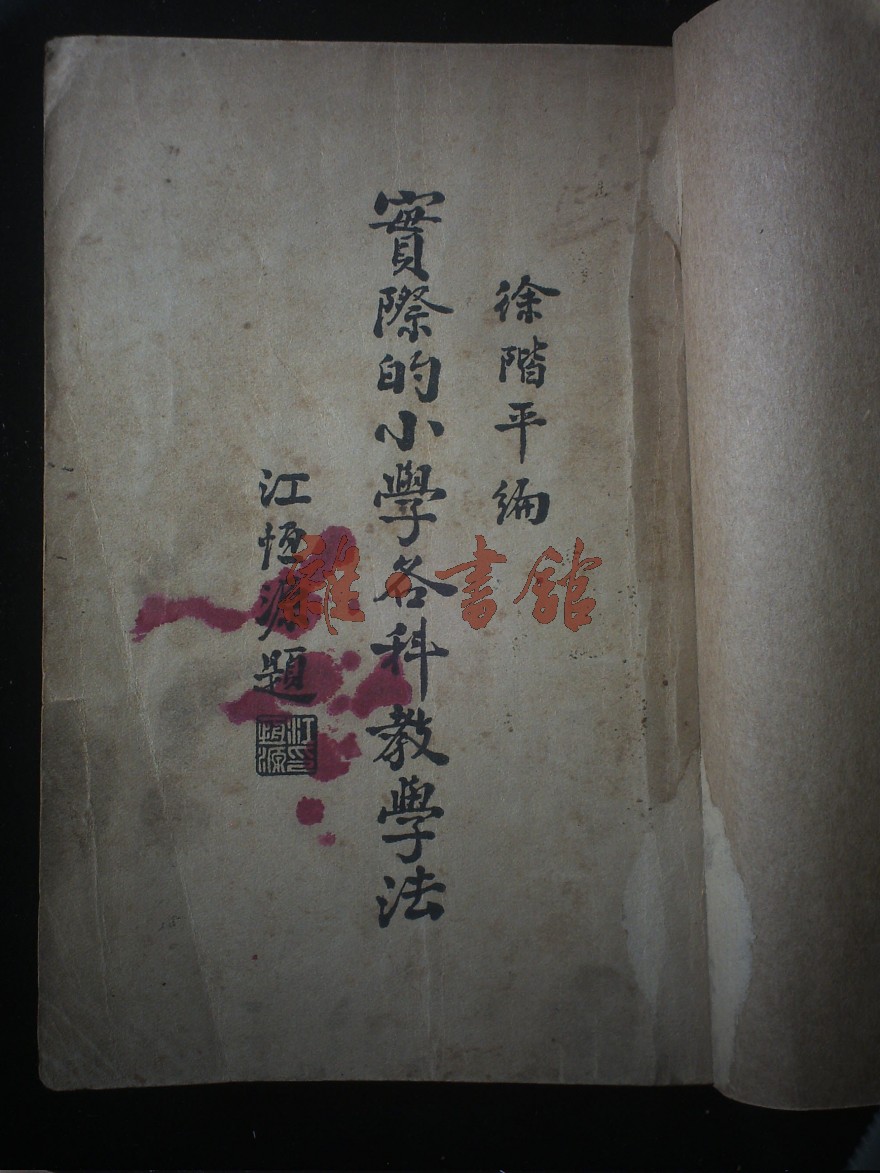 徐階平編
實際的小學各科教學法
江恆源題
江恆源印
雜·書館